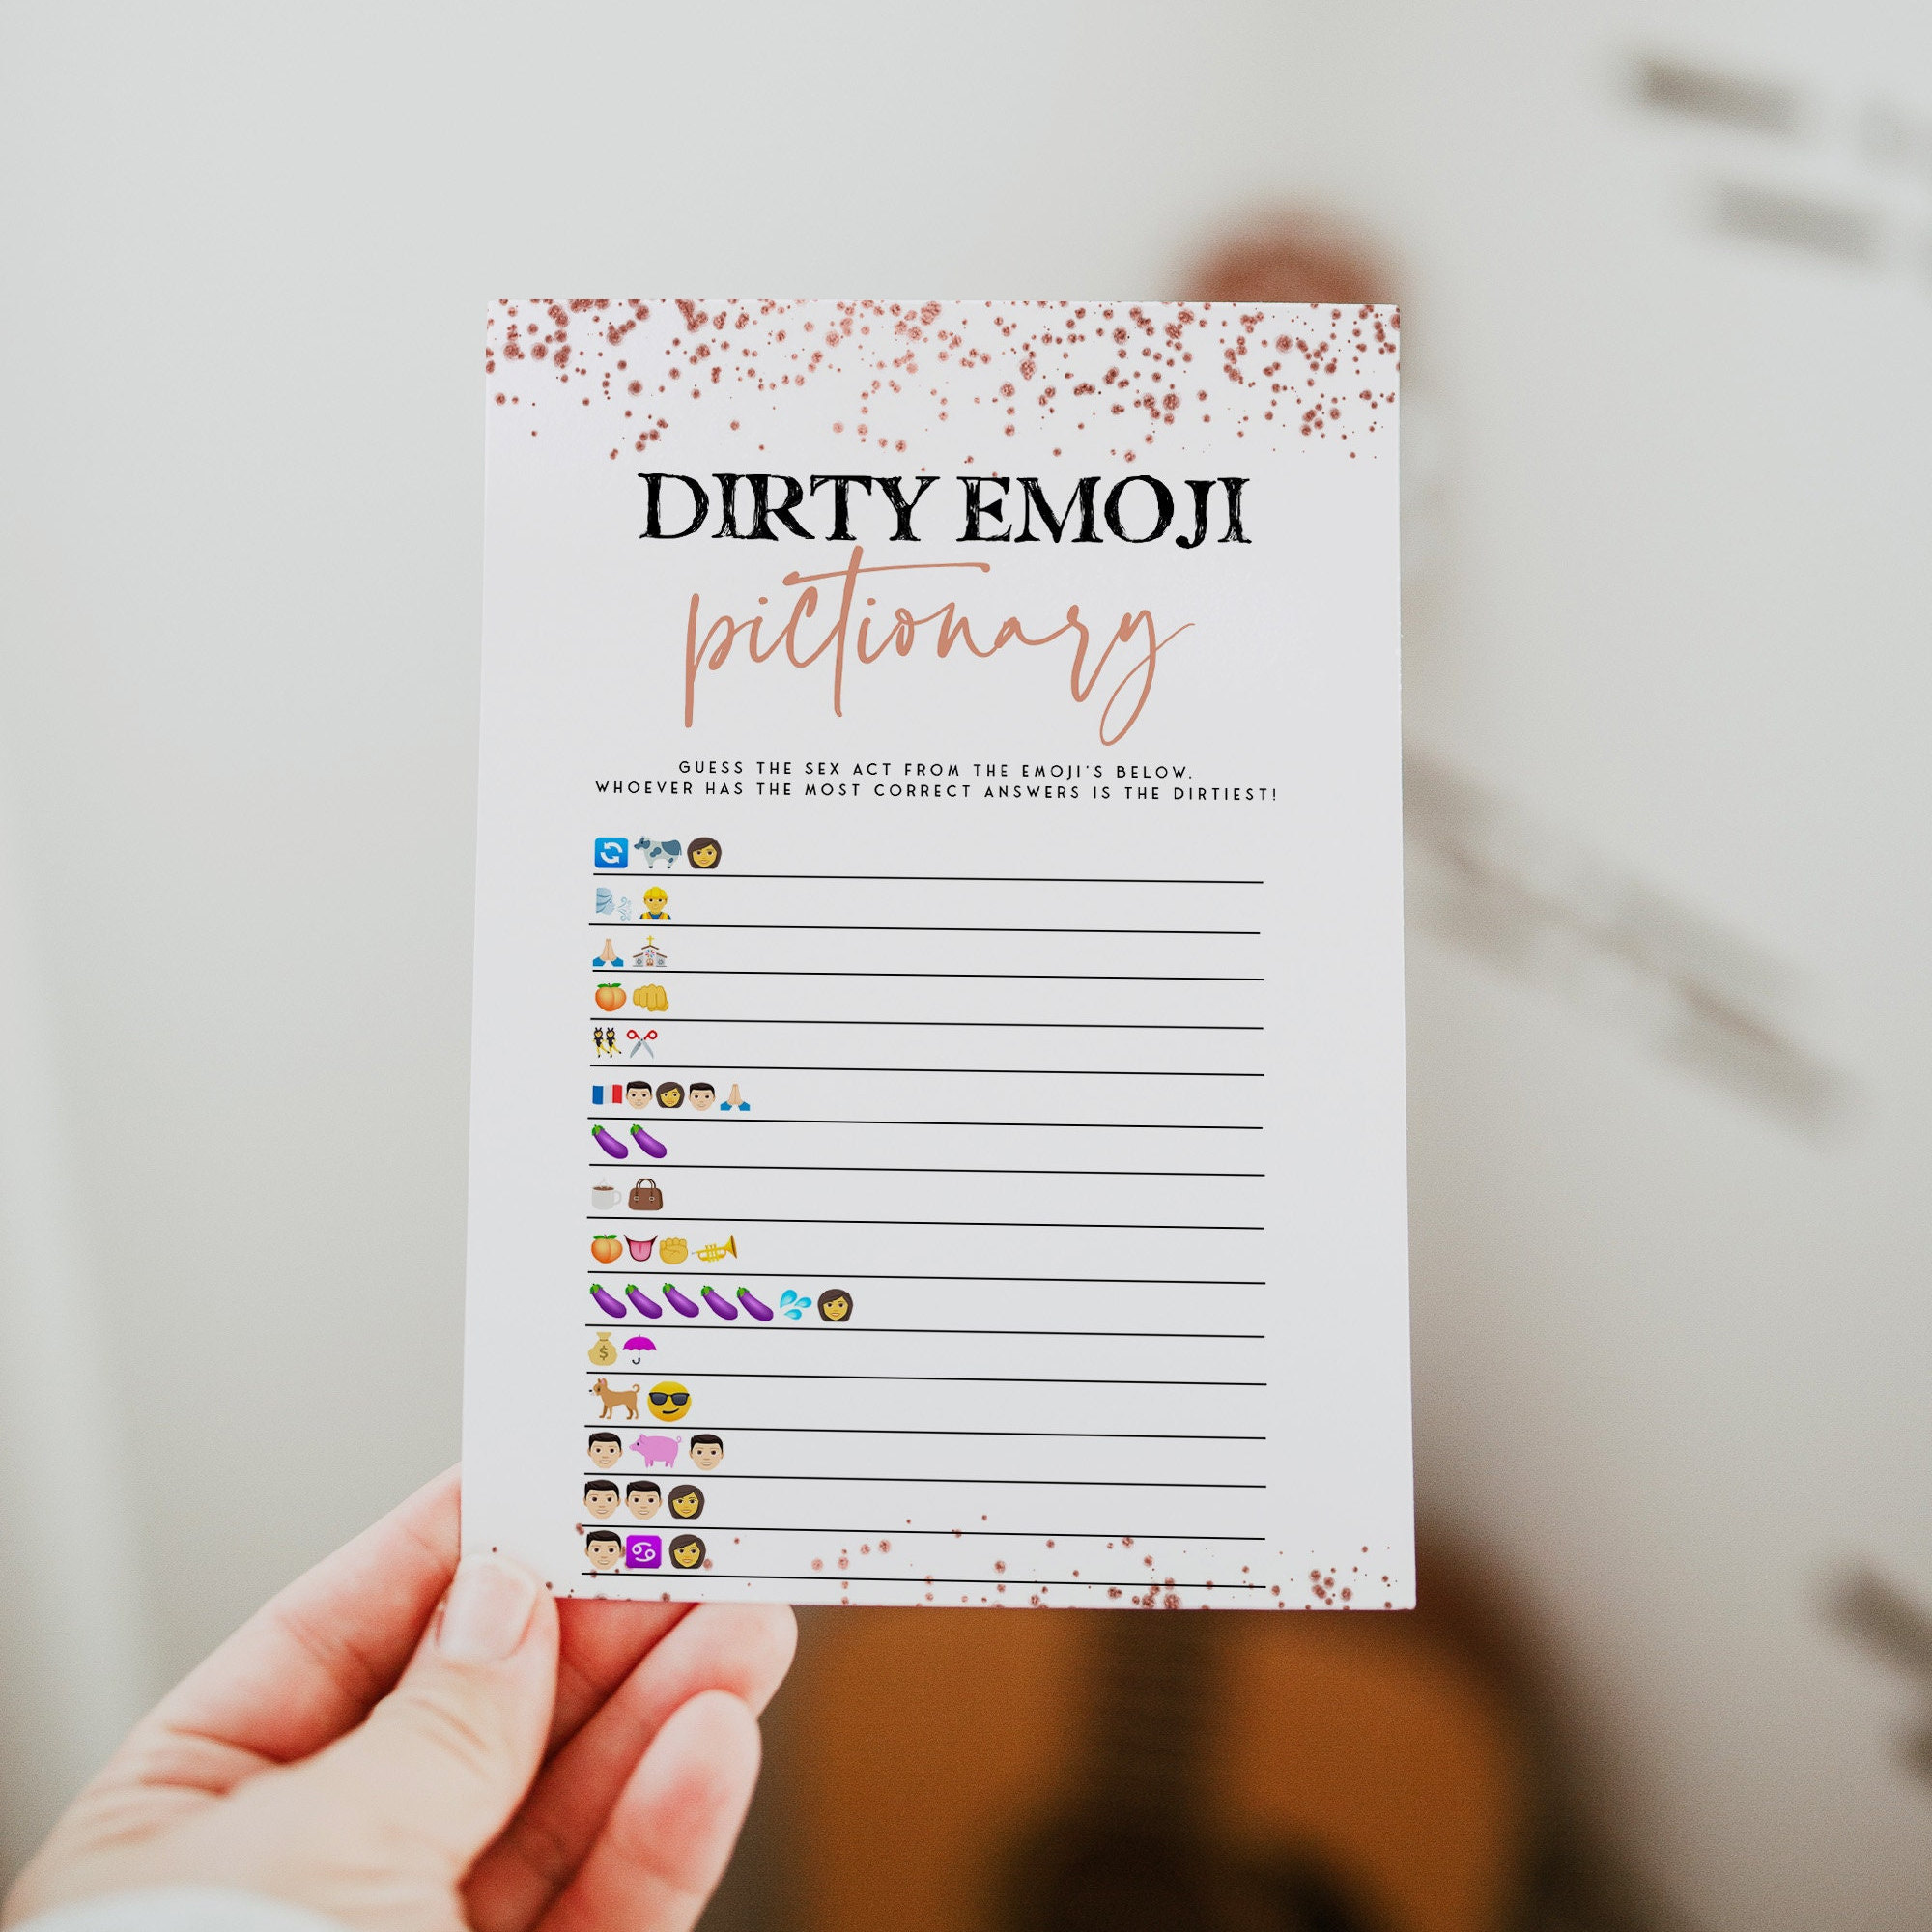 DIRTY EMOJI
pictionary
GUESS THE SEX ACT FROM THE EMOJI'S BELOW.
WHOEVER HAS THE MOST CORRECT ANSWERS IS THE DIRTIEST!